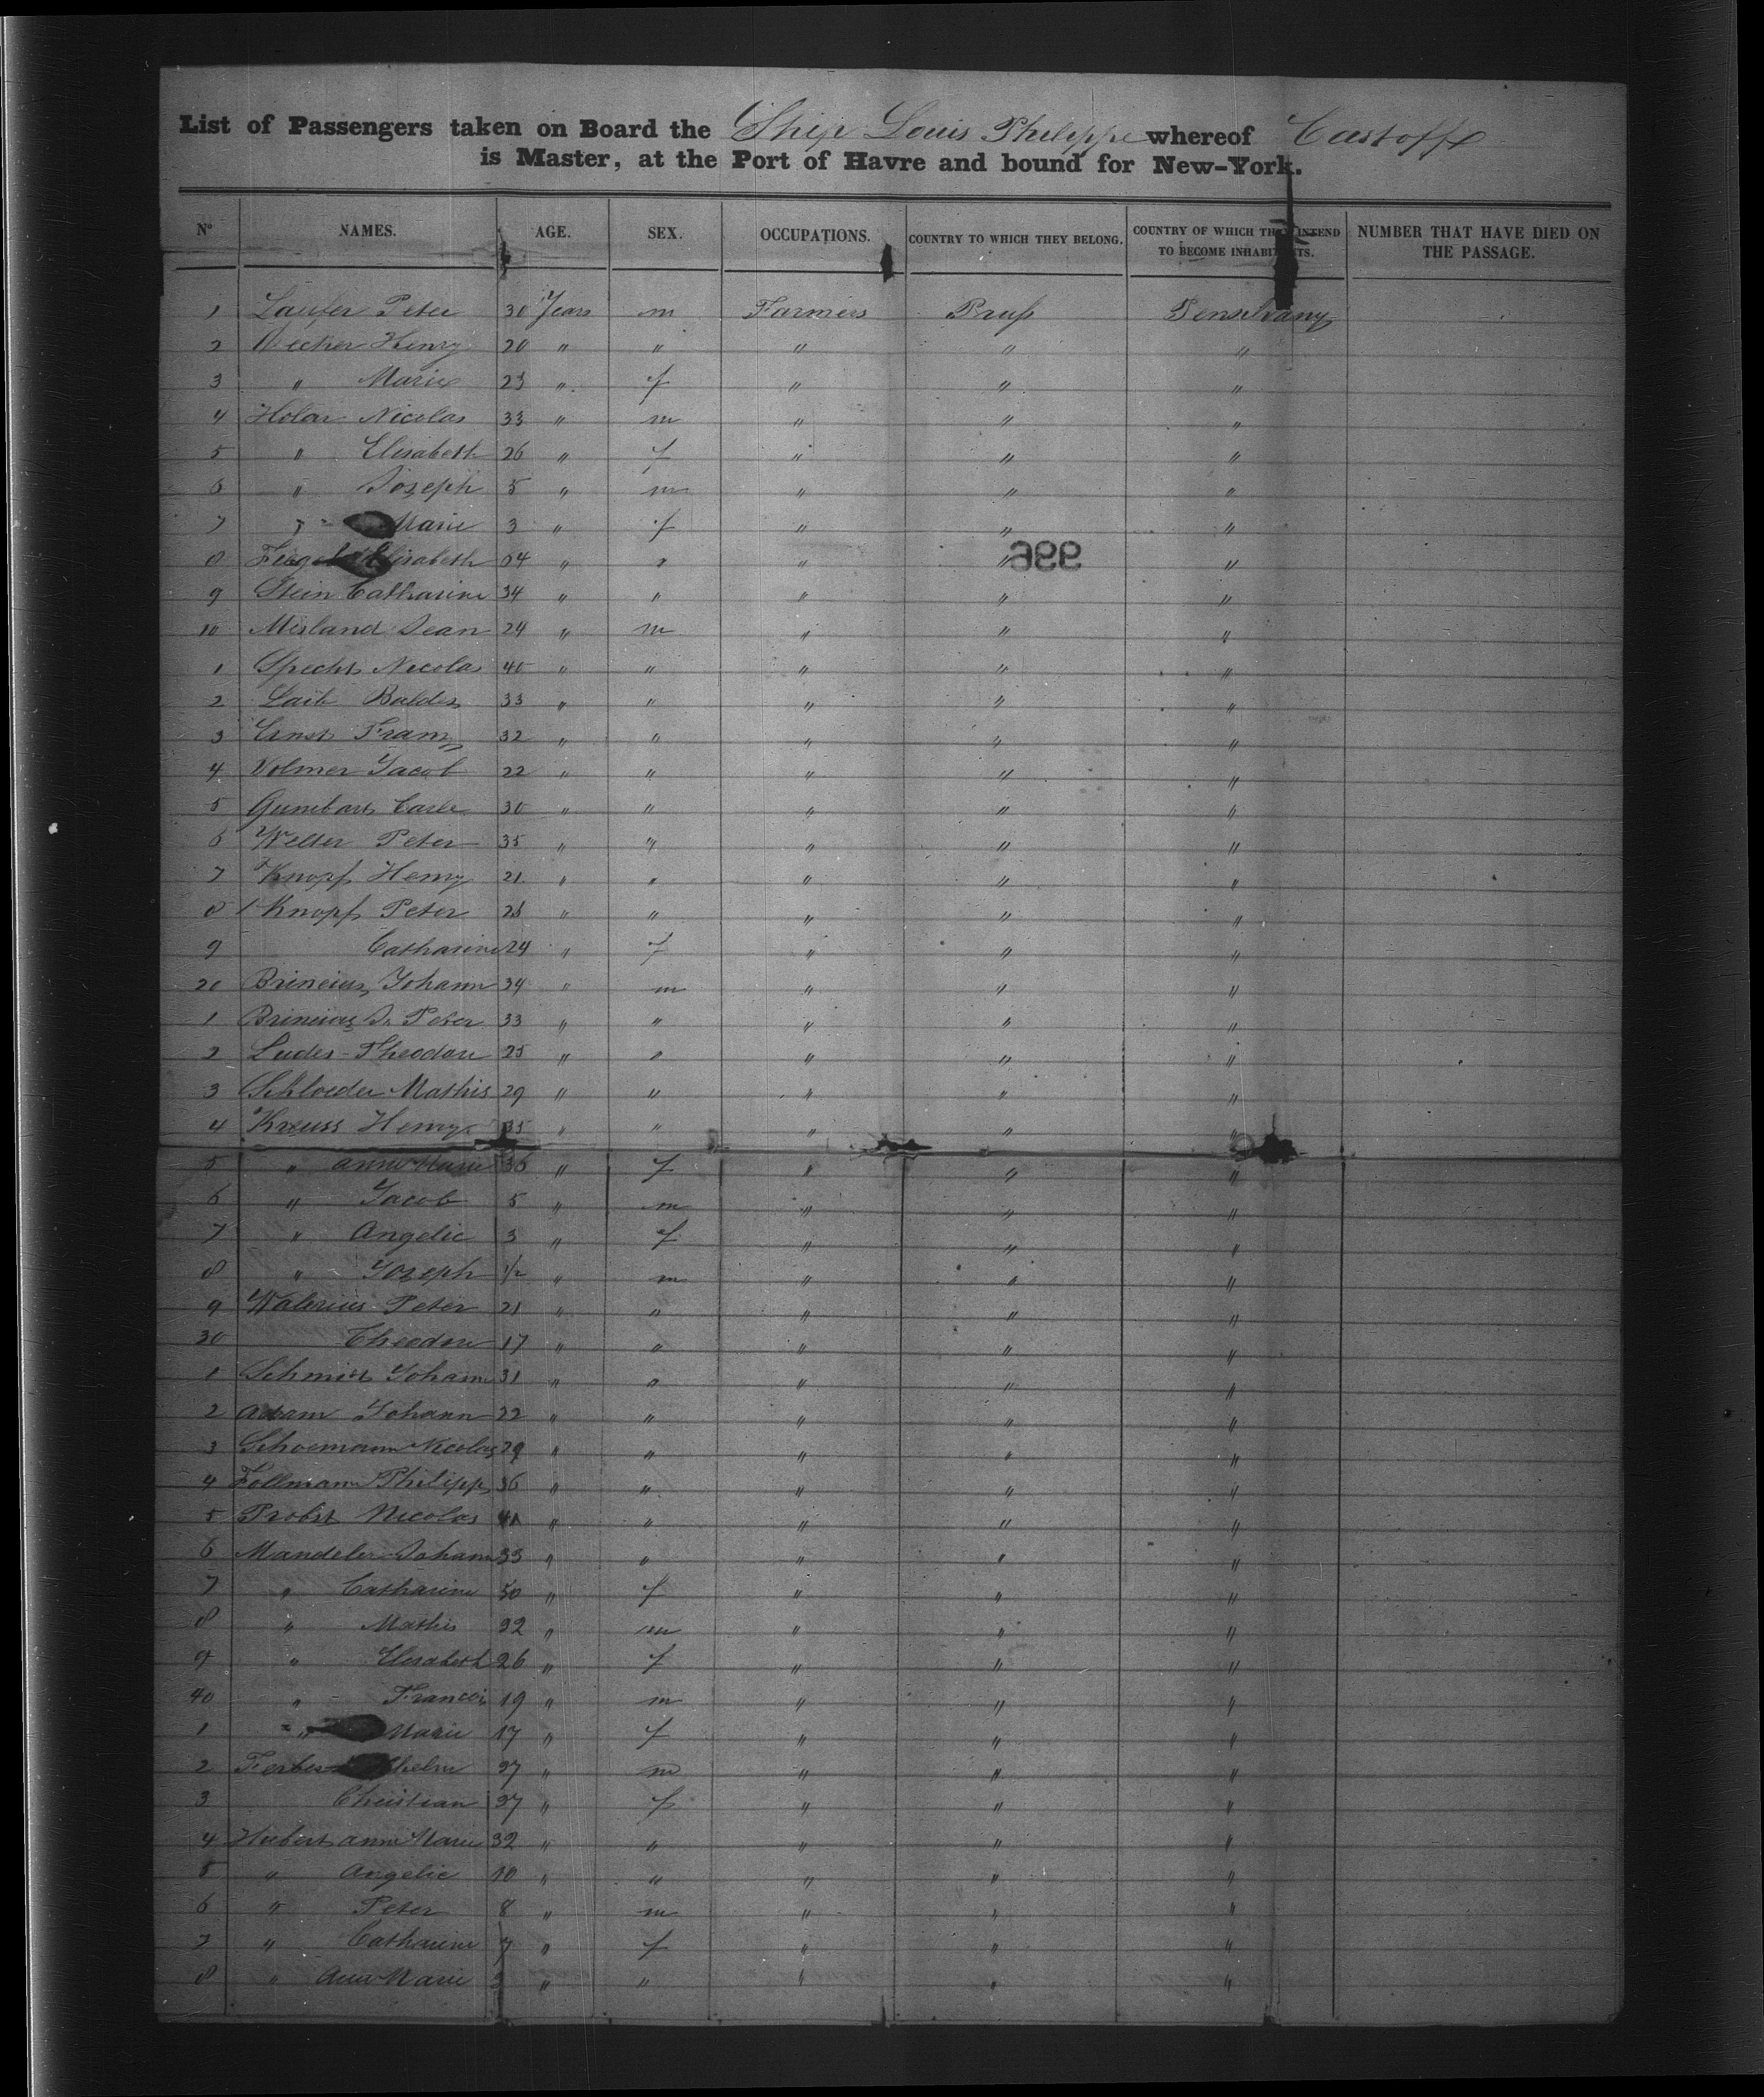 List of Passengers taken on Board the Ship Louis Philippe whereof Castoff
is Master, at the Port of Havre and bound for New-York.
N° NAMES. AGE. SEX. OCCUPATIONS. COUNTRY TO WHICH THEY BELONG. COUNTRY OF WHICH THEY INTEND TO BECOME INHABITANTS. NUMBER THAT HAVE DIED ON THE PASSAGE.
1 Laufer Peter 30 Years m Farmers Pruss Pensilvany
2 Henry 20 " " " " "
3 " Marie 23 " f " " "
4 Holar Nicolas 33 " m " " "
5 " Elisabeth 26 " f " " "
6 " Joseph 5 " m " " "
7 " Marie 3 " f " " "
8 Elisabeth 54 " " " " "
996
9 Stein Catharine 34 " " " " "
10 Misland Jean 24 " m " " "
1 Specht Nicolas 40 " " " " "
2 Laib Baldes 33 " " " " "
3 Ernst Franz 32 " " " " "
4 Volmer Jacob 22 " " " " "
5 Gumbart Carle 30 " " " " "
6 Welter Peter 35 " " " " "
7 Knopf Henry 21 " " " " "
8 Knopf Peter " " " " "
9 Catharine 24 " f " " "
20 Brincius Johann 34 " m " " "
1 Brincius Peter 33 " " " " "
2 Ludes Theodore 25 " " " " "
3 Schloeder Mathis 29 " " " " "
4 Kreuss Henry 35 " " " " "
5 " Anne Marie 36 " f " " "
6 " Jacob 5 " m " " "
7 " Angelic 3 " f " " "
8 " Joseph 1/2 " m " " "
9 Walerius Peter 21 " " " " "
30 Theodore 17 " " " " "
1 Schmidt Johann 31 " " " " "
2 Adam Johann 22 " " " " "
3 Schoemann Nicolas 29 " " " " "
4 Follmann Philipp 36 " " " " "
5 Probst Nicolas 41 " " " " "
6 Mandeler Johann 53 " " " " "
7 " Catharine 50 " f " " "
8 " Mathis 32 " m " " "
9 " Elisabeth 26 " f " " "
40 " Francois 19 " m " " "
1 " Marie 17 " f " " "
2 27 " m " " "
3 Christian 27 " f " " "
4 Hubert Anne Marie 32 " " " " "
5 " Angelic 10 " " " " "
6 " Peter 8 " m " " "
7 " Catharine 7 " f " " "
8 " Anne Marie " " " " "